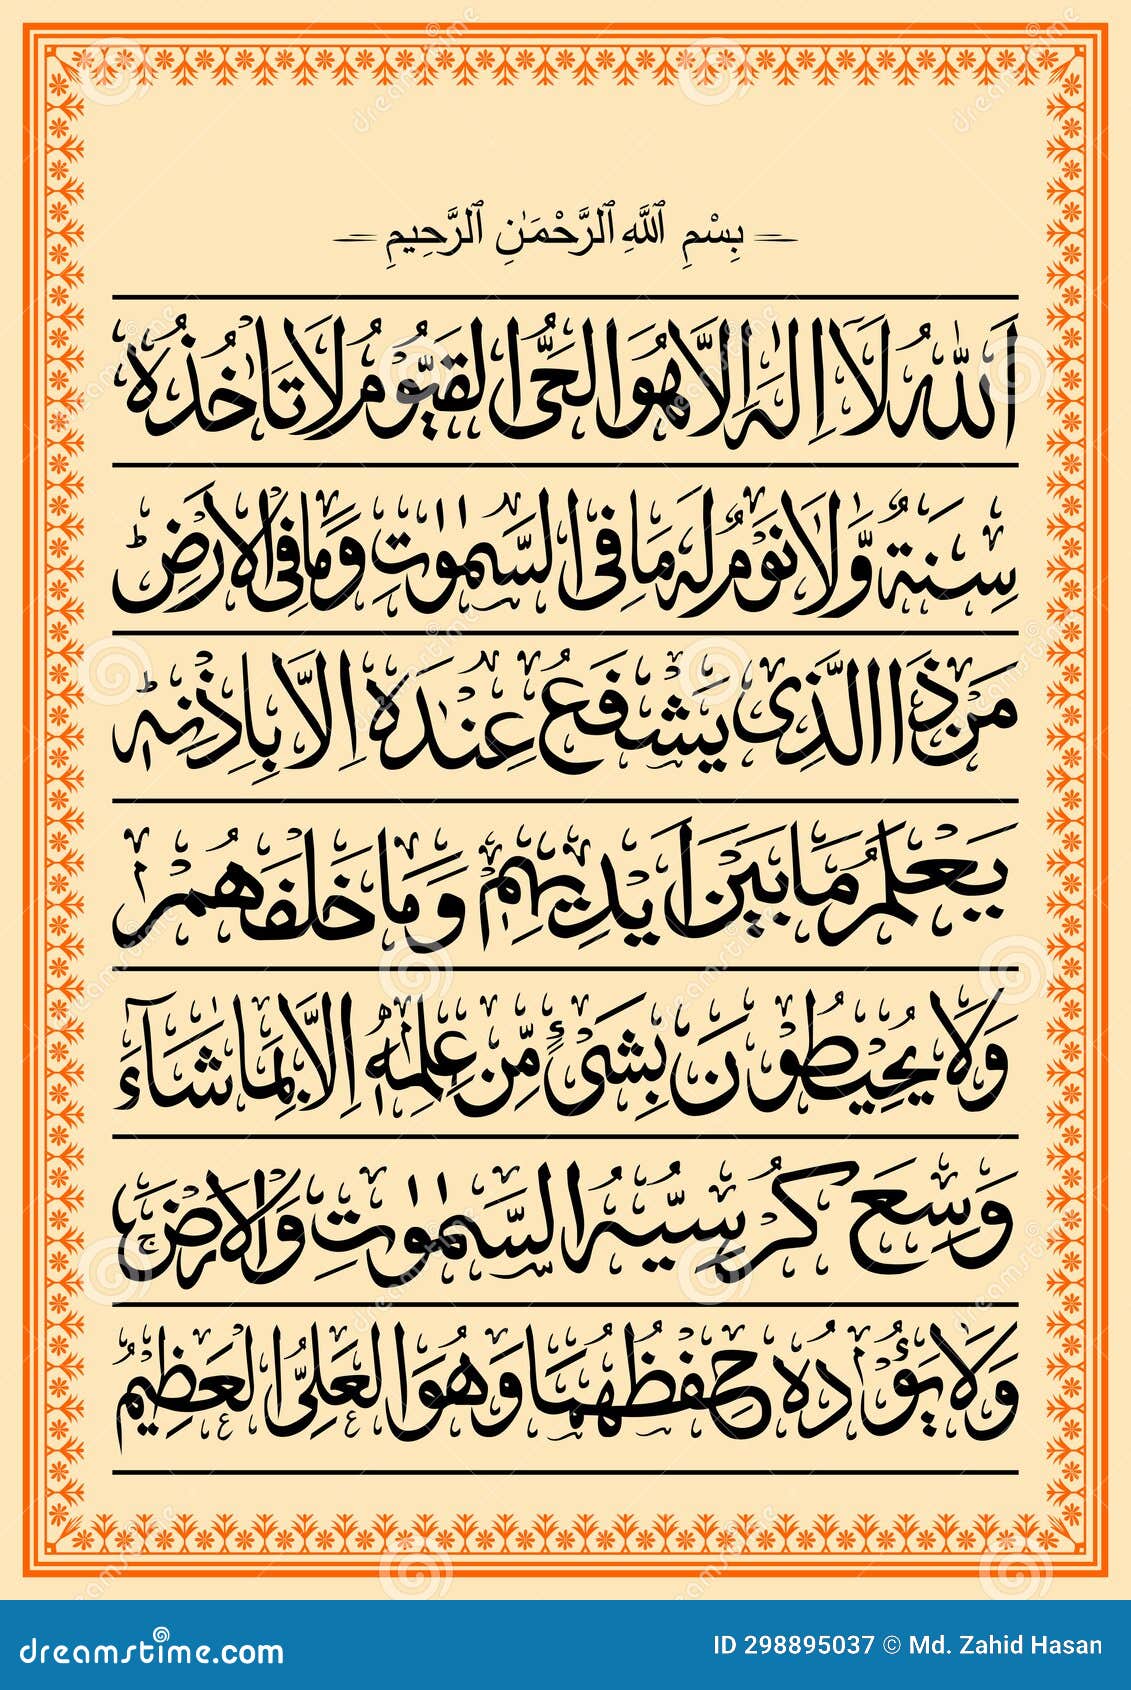 بِسْمِ ٱللَّهِ ٱلرَّحْمَٰنِ ٱلرَّحِيمِ
اَللّٰهُ لَاۤ اِلٰهَ اِلَّا هُوَ الْحَیُّ الْقَیُّوْمُ لَا تَاْخُذُهٗ
سِنَةٌ وَّلَا نَوْمٌ لَهٗ مَا فِی السَّمٰوٰتِ وَمَا فِی الْاَرْضِ ؕ
مَنْ ذَا الَّذِیْ یَشْفَعُ عِنْدَهٗۤ اِلَّا بِاِذْنِهٖ ؕ
یَعْلَمُ مَا بَیْنَ اَیْدِیْهِمْ وَمَا خَلْفَهُمْ
وَلَا یُحِیْطُوْنَ بِشَیْءٍ مِّنْ عِلْمِهٖۤ اِلَّا بِمَا شَآءَ
وَسِعَ كُرْسِیُّهُ السَّمٰوٰتِ وَالْاَرْضَ ۚ
وَلَا یَـُٔوْدُهٗ حِفْظُهُمَا وَهُوَ الْعَلِیُّ الْعَظِیْمُ
dreamstime.com
ID 298895037 © Md. Zahid Hasan